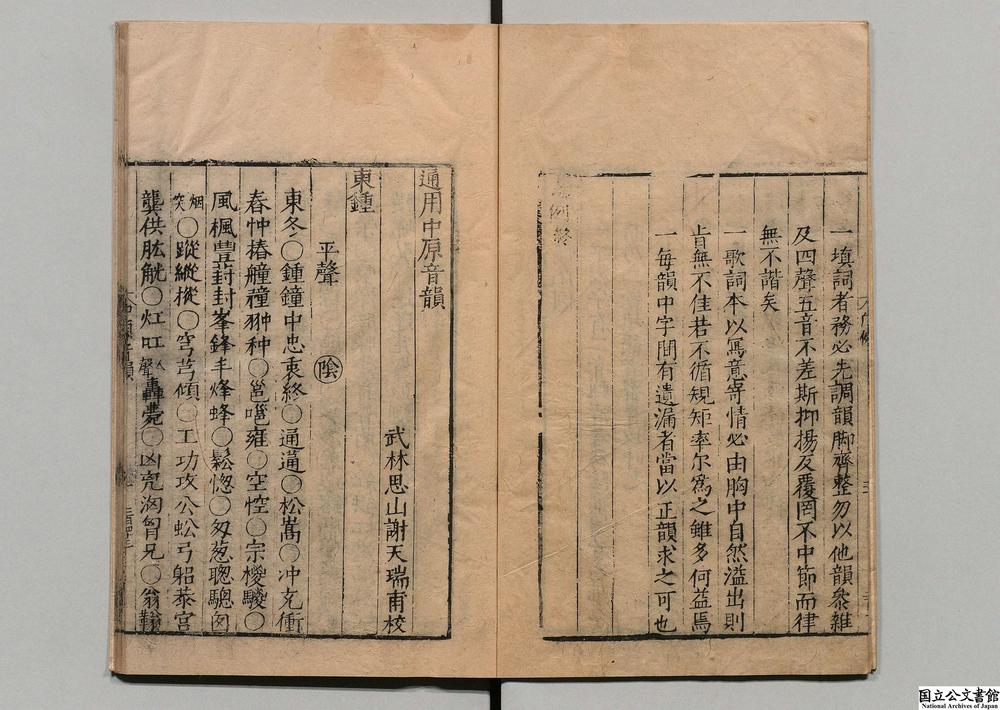 一填詞者務必先調韻脚齊整勿以他韻叅雜
及四聲五音不差斯抑揚反覆罔不中節而律
無不諧矣
一歌詞本以寫意寄情必由胸中自然溢出則
旹無不佳若不循規矩率尔爲之雖多何益焉
一每韻中字間有遺漏者當以正韻求之可也
例終
通用中原音韻
武林思山謝天瑞甫校
東鍾
平聲 陰
東冬〇鍾鐘中忠衷終〇通蓪〇松嵩〇冲充衝
舂忡樁艟穜翀种〇邕噰雍〇空悾〇宗椶騣〇
風楓豐封葑峯鋒丰烽蜂〇鬆惚〇匆葱聰驄囱
烟突〇蹤縱樅〇穹芎傾〇工功攻公蚣弓躬恭宮
龔供肱觥〇灴叿人聲轟薨〇凶兇洶胷兄〇翁鶲
国立公文書館
National Archives of Japan